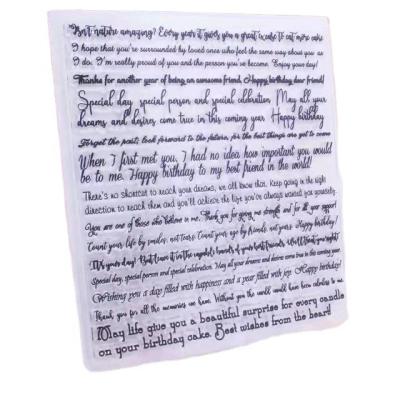 Isn't nature amazing? Every year it gives you a great excuse to eat more cake
I hope that you're surrounded by loved ones who feel the same way about you as
I do. I'm really proud of you and the person you've become. Enjoy your day!
Thanks for another year of being an awesome friend. Happy birthday dear friend!
Special day, special person and special celebration. May all your
dreams and desires come true in this coming year. Happy birthday
Forget the past; look forward to the future, for the best things are yet to come
When I first met you, I had no idea how important you would
be to me. Happy birthday to my best friend in the world!
There's no shortcut to reach your dreams, we all know that. Keep going in the right
direction to reach them and you'll achieve the life you've always wanted for yourself.
You are one of those who believe in me. Thank you for giving me strength and for all your support
Count your life by smiles, not tears. Count your age by friends, not years. Happy birthday!
It's your day! But leave it in the hands of your best friends.
Special day, special person and special celebration. May all your dreams and desires come true in this coming year.
Wishing you a day filled with happiness and a year filled with joy. Happy birthday!
Thank you for all the memories we have. Without you the world would have been colorless to me.
May life give you a beautiful surprise for every candle
on your birthday cake. Best wishes from the heart!